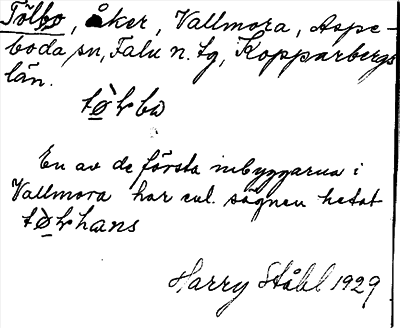 Tölbo, åker, Vallmora, Aspe-
boda sn, Falu n. tg, Kopparbergs
län.
En av de första inbyggarna i
Vallmora har enl. sägnen hetat
Harry Ståhl 1929